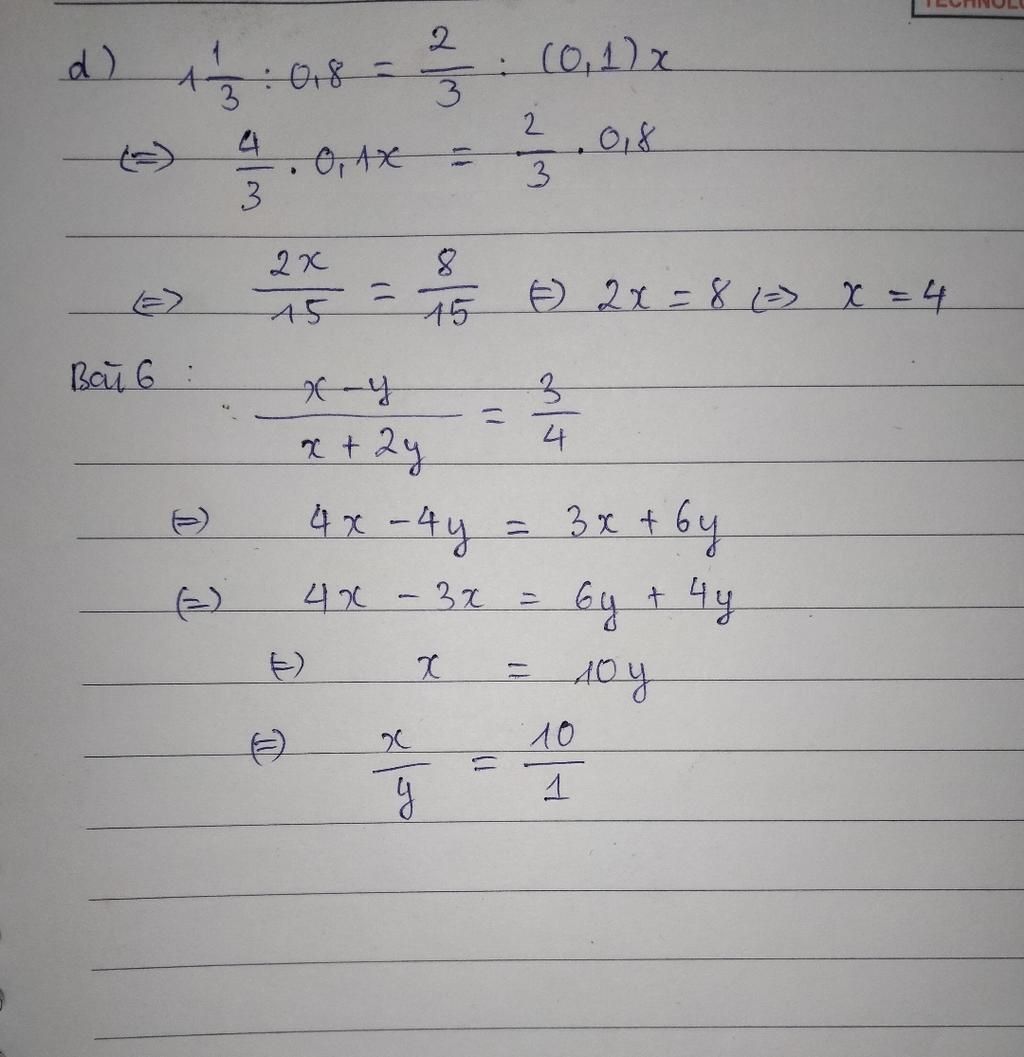 TECHNOL
d) 1 1/3 : 0,8 = 2/3 : (0,1)x
(=) 4/3 . 0,1x = 2/3 . 0,8
(=) 2x/15 = 8/15 (=) 2x = 8 (=) x = 4
Bài 6 : (x - y)/(x + 2y) = 3/4
(=) 4x - 4y = 3x + 6y
(=) 4x - 3x = 6y + 4y
(=) x = 10y
(=) x/y = 10/1